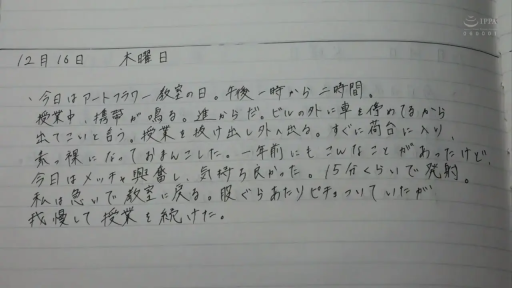 IPPA
12月16日 木曜日
、今日はアートフラワー教室の日。午後一時から二時間。
授業中、携帯が鳴る。進からだ。ビルの外に車を停めてるから
出てこいと言う。授業を抜け出し外へ出る。すぐに荷台に入り、
素っ裸になっておまんこした。一年前にもこんなことがあったけど、
今日はメッチャ興奮し、気持ち良かった。15分くらいで発射。
私は急いで教室に戻る。股ぐらあたりピチョついていたが
我慢して授業を続けた。